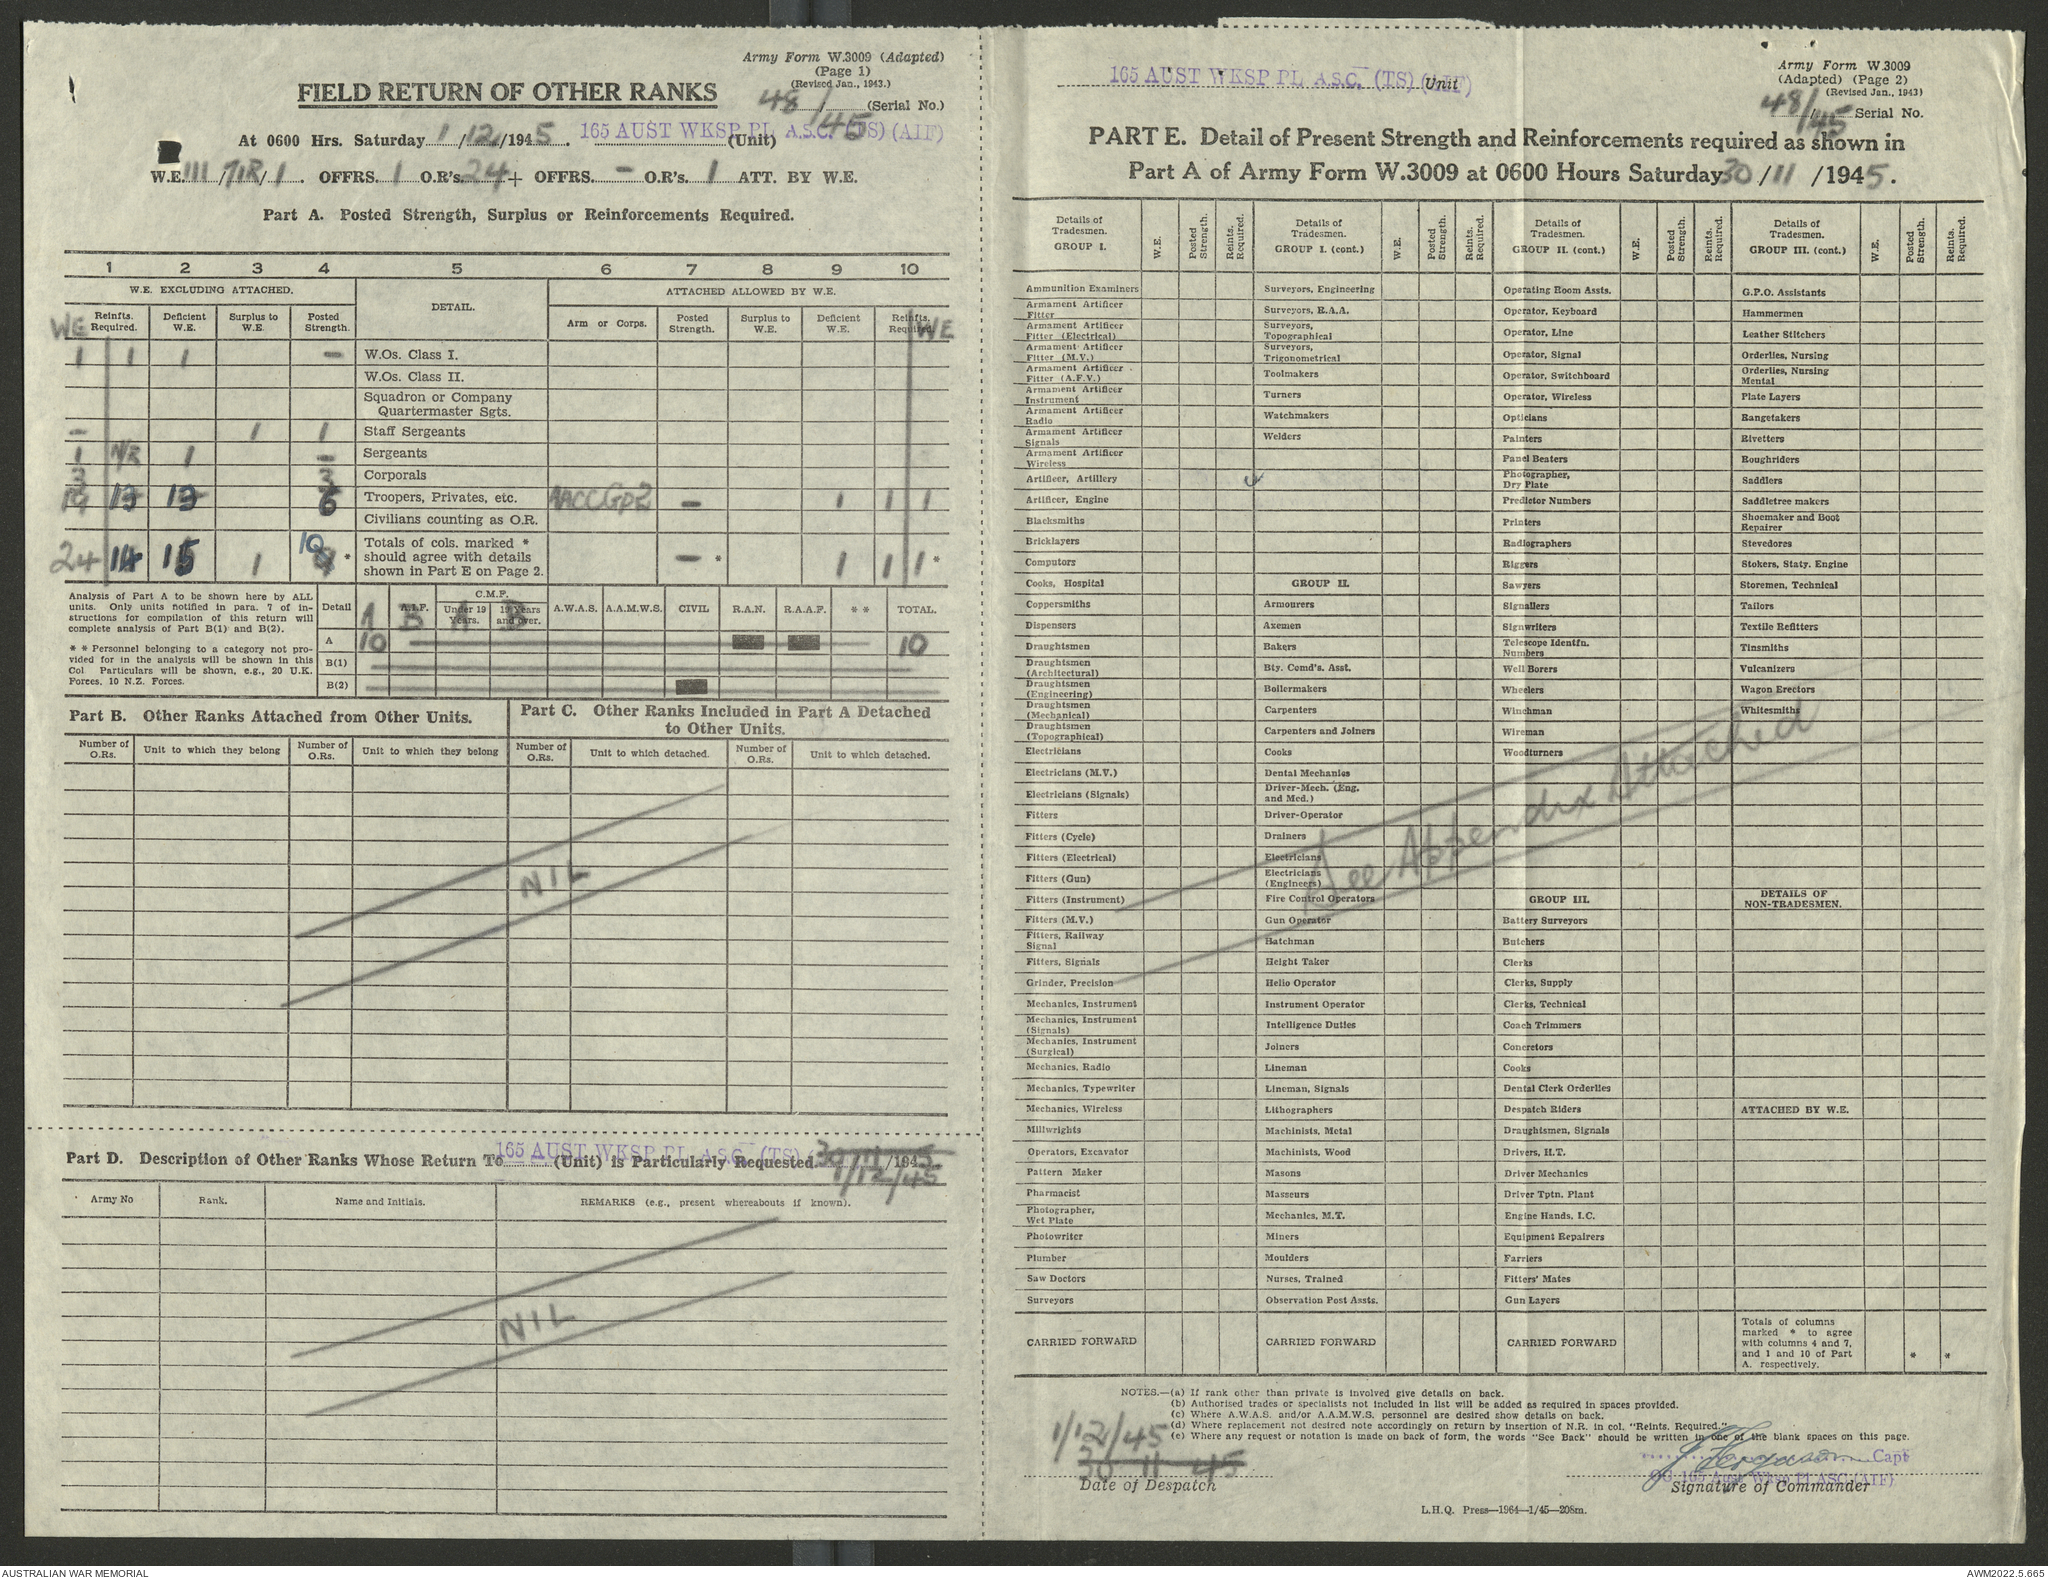 Army Form W.3009 (Adapted)
(Page 1)
(Revised Jan., 1943.)
FIELD RETURN OF OTHER RANKS
48/45 (Serial No.)
At 0600 Hrs. Saturday 1/12/1945. 165 AUST WKSP PL A.S.C. (TS) (AIF) (Unit)
W.E. III/71R/1. OFFRS. 1 O.R's. 24 + OFFRS. - O.R's. 1 ATT. BY W.E.
Part A. Posted Strength, Surplus or Reinforcements Required.
1 2 3 4 5 6 7 8 9 10
W.E. EXCLUDING ATTACHED. DETAIL. ATTACHED ALLOWED BY W.E.
WE Reinfts. Required. Deficient W.E. Surplus to W.E. Posted Strength. Arm or Corps. Posted Strength. Surplus to W.E. Deficient W.E. Reinfts. Required. WE
1 1 1 - W.Os. Class I.
W.Os. Class II.
Squadron or Company
Quartermaster Sgts.
- 1 1 Staff Sergeants
1 N/R 1 - Sergeants
3 3 Corporals
19 13 13 6 Troopers, Privates, etc. AACC Gp2 - 1 1 1
Civilians counting as O.R.
24 14 15 1 10 * Totals of cols. marked * should agree with details shown in Part E on Page 2. - * 1 1 1 *
Analysis of Part A to be shown here by ALL
units. Only units notified in para. 7 of in-
structions for compilation of this return will
complete analysis of Part B(1) and B(2).
* * Personnel belonging to a category not pro-
vided for in the analysis will be shown in this
Col. Particulars will be shown, e.g., 20 U.K.
Forces, 10 N.Z. Forces.
Detail A A.I.F. B C.M.F. Under 19 Years. A 19 Years and over. D A.W.A.S. A.A.M.W.S. CIVIL R.A.N. R.A.A.F. * * TOTAL.
A 10 10
B(1)
B(2)
Part B. Other Ranks Attached from Other Units.
Part C. Other Ranks Included in Part A Detached
to Other Units.
Number of O.Rs. Unit to which they belong Number of O.Rs. Unit to which they belong Number of O.Rs. Unit to which detached. Number of O.Rs. Unit to which detached.
NIL
Part D. Description of Other Ranks Whose Return To 165 AUST WKSP PL A.S.C. (TS) (Unit) is Particularly Requested 30/11/1945
1/12/45
Army No Rank. Name and Initials. REMARKS (e.g., present whereabouts if known).
NIL
165 AUST WKSP PL A.S.C. (TS) (AIF) Unit
Army Form W.3009
(Adapted) (Page 2)
(Revised Jan., 1943)
48/45 Serial No.
PART E. Detail of Present Strength and Reinforcements required as shown in
Part A of Army Form W.3009 at 0600 Hours Saturday 30/11/1945.
Details of Tradesmen. GROUP I. W.E. Posted Strength. Reints. Required.
Ammunition Examiners
Armament Artificer Fitter
Armament Artificer Fitter (Electrical)
Armament Artificer Fitter (M.V.)
Armament Artificer Fitter (A.F.V.)
Armament Artificer Instrument
Armament Artificer Radio
Armament Artificer Signals
Armament Artificer Wireless
Artificer, Artillery
Artificer, Engine
Blacksmiths
Bricklayers
Computors
Cooks, Hospital
Coppersmiths
Dispensers
Draughtsmen
Draughtsmen (Architectural)
Draughtsmen (Engineering)
Draughtsmen (Mechanical)
Draughtsmen (Topographical)
Electricians
Electricians (M.V.)
Electricians (Signals)
Fitters
Fitters (Cycle)
Fitters (Electrical)
Fitters (Gun)
Fitters (Instrument)
Fitters (M.V.)
Fitters, Railway Signal
Fitters, Signals
Grinder, Precision
Mechanics, Instrument
Mechanics, Instrument (Signals)
Mechanics, Instrument (Surgical)
Mechanics, Radio
Mechanics, Typewriter
Mechanics, Wireless
Millwrights
Operators, Excavator
Pattern Maker
Pharmacist
Photographer, Wet Plate
Photowriter
Plumber
Saw Doctors
Surveyors
CARRIED FORWARD
Details of Tradesmen. GROUP I. (cont.) W.E. Posted Strength. Reints. Required.
Surveyors, Engineering
Surveyors, R.A.A.
Surveyors, Topographical
Surveyors, Trigonometrical
Toolmakers
Turners
Watchmakers
Welders
GROUP II.
Armourers
Axemen
Bakers
Bty. Comd's. Asst.
Boilermakers
Carpenters
Carpenters and Joiners
Cooks
Dental Mechanics
Driver-Mech. (Eng. and Med.)
Driver-Operator
Drainers
Electricians
Electricians (Engineers)
Fire Control Operators
Gun Operator
Hatchman
Height Taker
Helio Operator
Instrument Operator
Intelligence Duties
Joiners
Lineman
Lineman, Signals
Lithographers
Machinists, Metal
Machinists, Wood
Masons
Masseurs
Mechanics, M.T.
Miners
Moulders
Nurses, Trained
Observation Post Assts.
CARRIED FORWARD
Details of Tradesmen. GROUP II. (cont.) W.E. Posted Strength. Reints. Required.
Operating Room Assts.
Operator, Keyboard
Operator, Line
Operator, Signal
Operator, Switchboard
Operator, Wireless
Opticians
Painters
Panel Beaters
Photographer, Dry Plate
Predictor Numbers
Printers
Radiographers
Riggers
Sawyers
Signallers
Signwriters
Telescope Identfn. Numbers
Well Borers
Wheelers
Winchman
Wireman
Woodturners
GROUP III.
Battery Surveyors
Butchers
Clerks
Clerks, Supply
Clerks, Technical
Coach Trimmers
Concretors
Cooks
Dental Clerk Orderlies
Despatch Riders
Draughtsmen, Signals
Drivers, H.T.
Driver Mechanics
Driver Tptn. Plant
Engine Hands, I.C.
Equipment Repairers
Farriers
Fitters' Mates
Gun Layers
CARRIED FORWARD
Details of Tradesmen. GROUP III. (cont.) W.E. Posted Strength. Reints. Required.
G.P.O. Assistants
Hammermen
Leather Stitchers
Orderlies, Nursing
Orderlies, Nursing Mental
Plate Layers
Rangetakers
Rivetters
Roughriders
Saddlers
Saddletree makers
Shoemaker and Boot Repairer
Stevedores
Stokers, Staty. Engine
Storemen, Technical
Tailors
Textile Refitters
Tinsmiths
Vulcanizers
Wagon Erectors
Whitesmiths
See Appendix Attached
DETAILS OF NON-TRADESMEN.
ATTACHED BY W.E.
Totals of columns marked * to agree with columns 4 and 7, and 1 and 10 of Part A. respectively. * *
NOTES.—(a) If rank other than private is involved give details on back.
(b) Authorised trades or specialists not included in list will be added as required in spaces provided.
(c) Where A.W.A.S. and/or A.A.M.W.S. personnel are desired show details on back.
(d) Where replacement not desired note accordingly on return by insertion of N.R. in col. "Reints. Required."
(e) Where any request or notation is made on back of form, the words "See Back" should be written in one of the blank spaces on this page.
1/12/45
30 11 45
Date of Despatch
J Ferguson Capt
OC 165 Aust Wksp Pl ASC (AIF)
Signature of Commander
L.H.Q. Press—1964—1/45—208m.
AUSTRALIAN WAR MEMORIAL
AWM2022.5.665